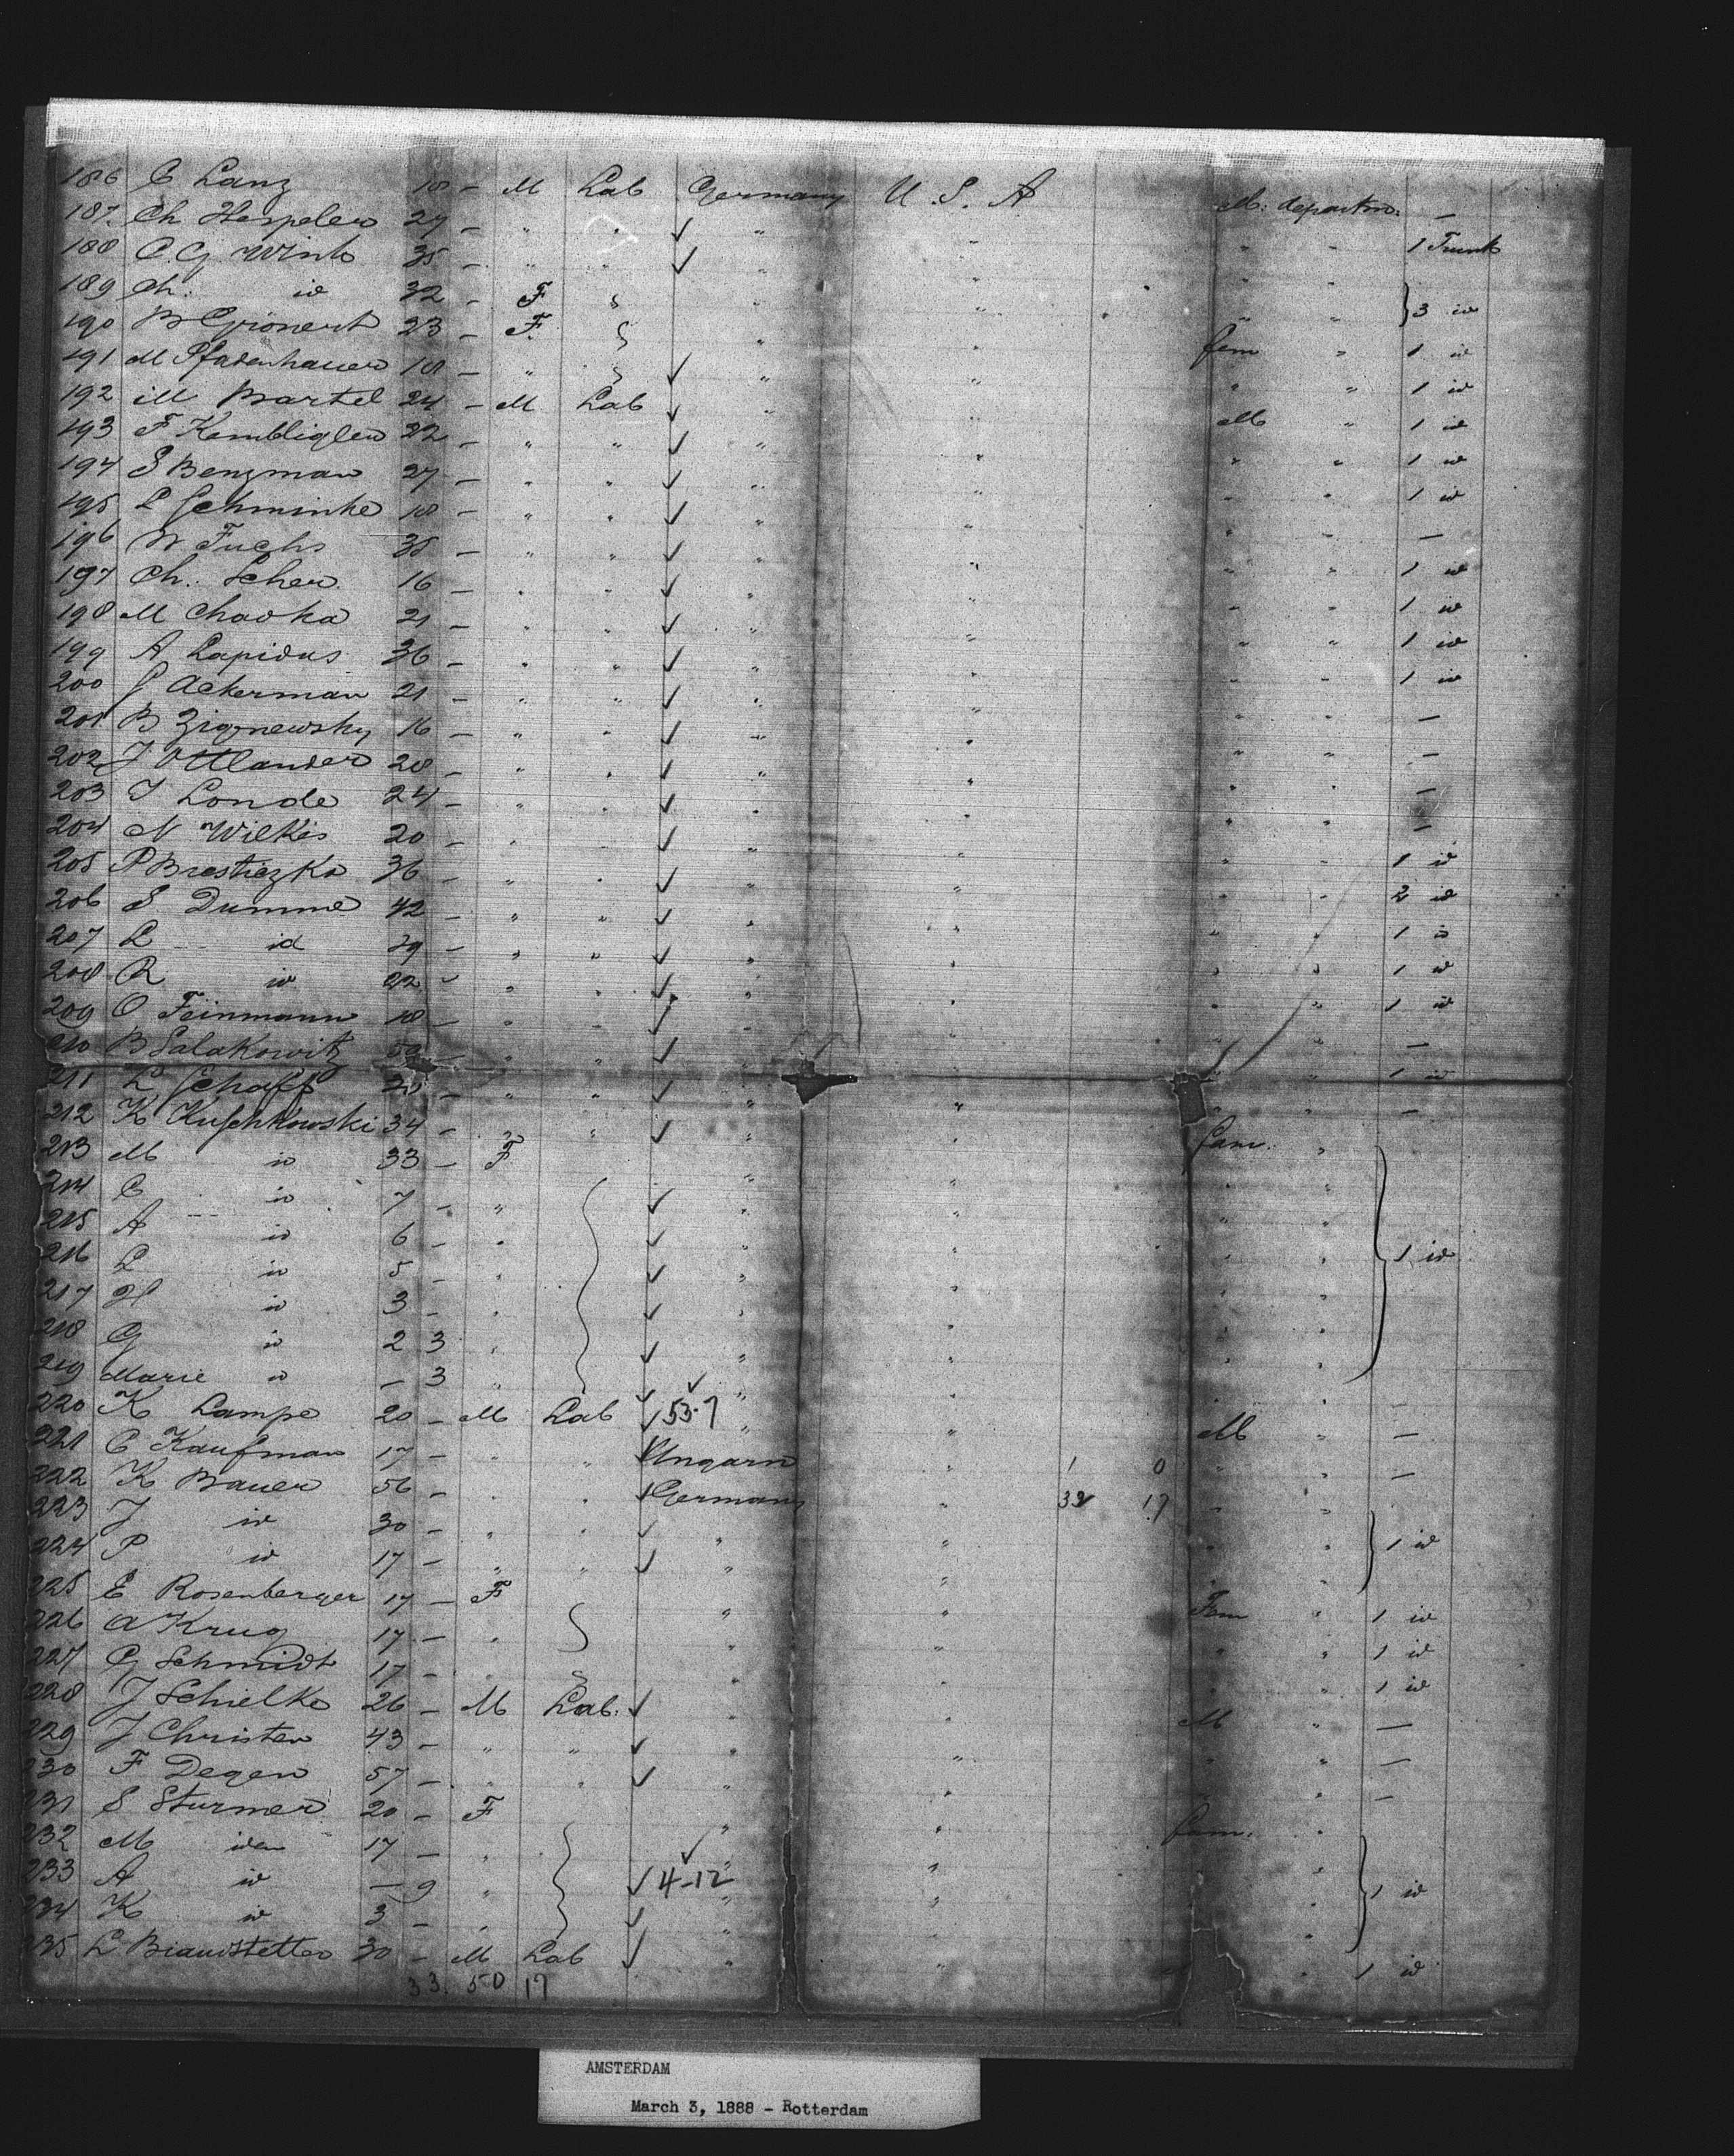 186 C Lanz 18 – M Lab Germany U. S. A M: departm: –
187 Ch Hespeler 27 – " " " " " " 1 Trunk
188 C. G. Wink 35 – " " " " " "
189 Ch. id 32 – F " " " " } 3 id
190 B Grönert 23 – F. " " fem " 1 id
191 M Pfadenhauer 18 – " " " " " 1 id
192 M Bartel 24 – M Lab " " M " 1 id
193 F Kembligler 22 – " " " " " " 1 id
194 S Benzman 27 – " " " " " " 1 id
195 L Schminke 18 – " " " " " " –
196 W Fuchs 35 – " " " " " " 1 id
197 Ch. Scher 16 – " " " " " " 1 id
198 M Chavka 21 – " " " " " " 1 id
199 A Lapidus 36 – " " " " " " 1 id
200 S Ackerman 21 – " " " " " " –
201 B Zigznewsky 16 – " " " " " " –
202 J Ottlander 28 – " " " " " " –
203 I Londe 24 – " " " " " " –
204 N Wilkes 20 – " " " " " " 1 id
205 P Brestiezka 36 – " " " " " " 2 id
206 S Dumme 42 – " " " " " " 1 id
207 L id 39 – " " " " " " 1 id
208 R id 22 – " " " " " " 1 id
209 O Feinmann 18 – " " " " " " –
210 B Salakowitz – " " " " " " 1 id
211 L Schaff – " " " " " " –
212 K Kuschkowski 34 – " " " " fam: "
213 M id 33 – F " " " "
214 C id 7 – " " " " "
215 A id 6 – " " " " " } 1 id
216 L id 5 – " " " " "
217 H id 3 – " " " " "
218 G id 2 3 " " " " "
219 Marie id – 3 " " " " –
220 K Lampe 20 – M Lab 53-7 " " M " –
221 C Kaufman 17 – " " Ungarn " 1 0 " –
222 K Bauer 56 – " " Germany " 32 17 " "
223 J id 30 – " " " " " " } 1 id
224 P id 17 – " " " " " "
225 E Rosenberger 17 – F " " Fem " 1 id
226 A Krug 17 – " " " " " 1 id
227 G Schmidt 17 – " " " " " 1 id
228 J Schielke 26 – M Lab. " " M " –
229 J Christen 43 – " " " " " " –
230 F Degen 57 – " " " " " " –
231 S Sturmer 20 – F " " fam. "
232 M idem 17 – " " " "
233 A id – 9 " 4-12 " " " } 1 id
234 K id 3 – " " " "
235 L Biandstetter 30 – M Lab " " " 1 id
33. 50 17
AMSTERDAM
March 3, 1888 - Rotterdam